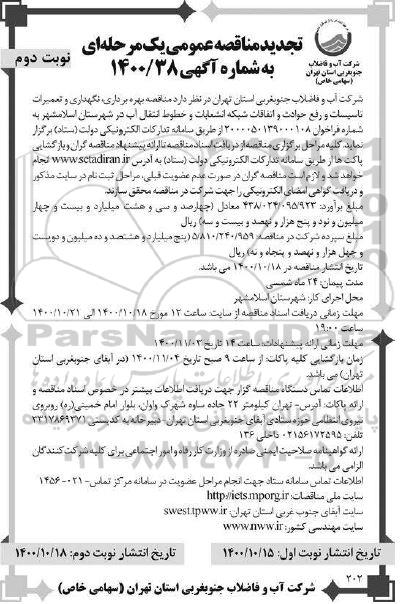 تجدید مناقصه عمومی یک مرحله‌ای
به شماره آگهی ۱۴۰۰/۳۸
نوبت دوم
شرکت آب و فاضلاب
جنوبغربی استان تهران
(سهامی خاص)
شرکت آب و فاضلاب جنوبغربی استان تهران در نظر دارد مناقصه بهره برداری، نگهداری و تعمیرات
تاسیسات و رفع حوادث و اتفاقات شبکه انشعابات و خطوط انتقال آب در شهرستان اسلامشهر به
شماره فراخوان ۲۰۰۰۰۵۰۱۳۹۰۰۰۱۰۸ از طریق سامانه تدارکات الکترونیکی دولت (ستاد) برگزار
نماید. کلیه مراحل برگزاری مناقصه از دریافت اسناد مناقصه تا ارائه پیشنهاد مناقصه گران و بازگشایی
پاکت ها از طریق سامانه تدارکات الکترونیکی دولت (ستاد) به آدرس www.sctadiran.ir انجام
خواهد شد و لازم است مناقصه گران در صورت عدم عضویت قبلی، مراحل ثبت نام در سایت مذکور
و دریافت گواهی امضای الکترونیکی را جهت شرکت در مناقصه محقق سازند.
مبلغ برآورد: ۴۳۸/۰۲۴/۰۹۵/۹۲۳ معادل (چهارصد و سی و هشت میلیارد و بیست و چهار
میلیون و نود و پنج هزار و نهصد و بیست و سه) ریال
مبلغ سپرده شرکت در مناقصه ۵/۸۱۰/۲۴۰/۹۵۹ (پنج میلیارد و هشتصد و ده میلیون و دویست
و چهل هزار و نهصد و پنجاه و نه) ریال
تاریخ انتشار مناقصه در ۱۴۰۰/۱۰/۱۸ می باشد.
مدت پیمان: ۲۴ ماه شمسی
محل اجرای کار: شهرستان اسلامشهر
مهلت زمانی دریافت اسناد مناقصه از سایت: ساعت ۱۲ مورخ ۱۴۰۰/۱۰/۱۸ الی ۱۴۰۰/۱۰/۲۱
ساعت ۱۹:۰۰
مهلت زمانی ارائه پیشنهادات: ساعت ۱۴ تاریخ ۱۴۰۰/۱۱/۰۳
زمان بازگشایی کلیه پاکات: از ساعت ۹ صبح تاریخ ۱۴۰۰/۱۱/۰۴ (در آبفای جنوبغربی استان
تهران) می باشد.
اطلاعات تماس دستگاه مناقصه گزار جهت دریافت اطلاعات بیشتر در خصوص اسناد مناقصه و
ارائه پاکات: آدرس- تهران کیلومتر ۲۲ جاده ساوه شهرک واوان، بلوار امام خمینی(ره) روبروی
نیروی انتظامی حوزه ستادی آبفای جنوبغربی استان تهران- دبیرخانه به کدپستی ۳۳۱۷۸۶۹۲۷۱
تلفن: ۰۲۱۵۶۱۷۲۵۹۵ داخلی ۱۳۶
ارائه گواهینامه صلاحیت ایمنی صادره از وزارت کار رفاه و امور اجتماعی برای کلیه شرکت کنندگان
الزامی می باشد.
اطلاعات تماس سامانه ستاد جهت انجام مراحل عضویت در سامانه مرکز تماس- ۰۲۱-۱۴۵۶
سایت ملی مناقصات: http://iets.mporg.ir
سایت آبفای جنوب غربی استان تهران: swest.tpww.ir
سایت مهندسی کشور: www.nww.ir
تاریخ انتشار نوبت اول: ۱۴۰۰/۱۰/۱۵
تاریخ انتشار نوبت دوم: ۱۴۰۰/۱۰/۱۸
۲۰۲
شرکت آب و فاضلاب جنوبغربی استان تهران (سهامی خاص)